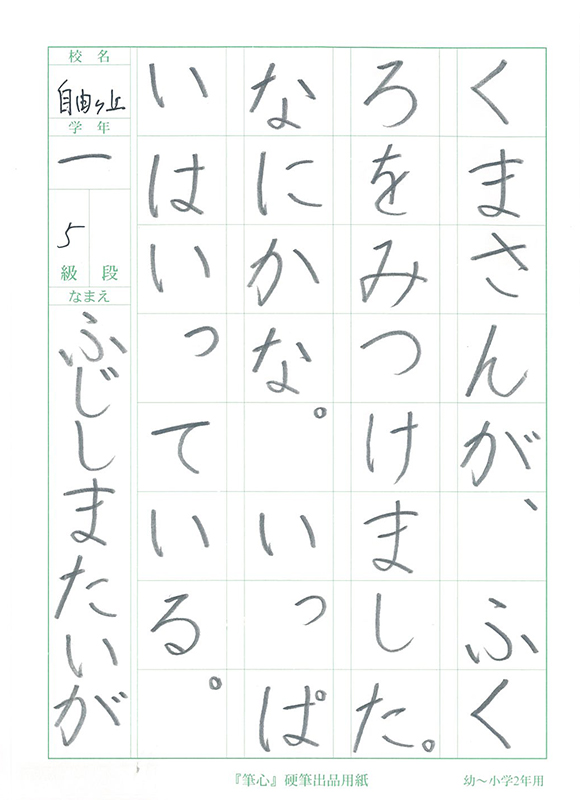 くまさんが、ふく
ろをみつけました。
なにかな。いっぱ
いはいっている。
校名
自由ヶ丘
学年
一
5
級 段
なまえ
ふじしまたいが
『筆心』硬筆出品用紙
幼～小学2年用